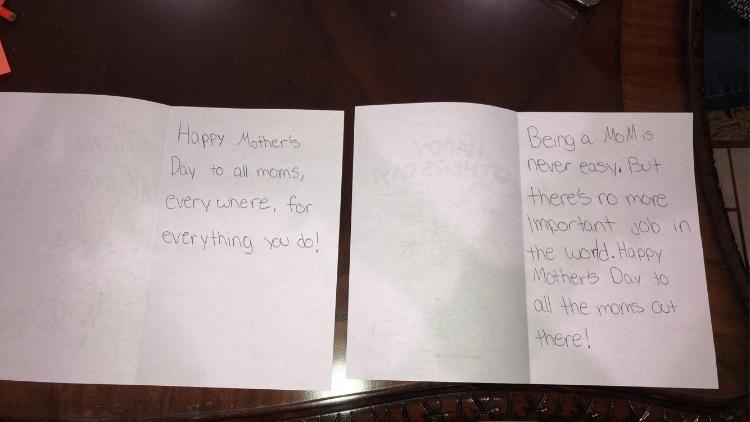 Happy Mother's
Day to all moms,
everywhere, for
everything you do!
Being a MoM is
never easy. But
there's no more
Important job in
the world. Happy
Mother's Day to
all the moms out
there!